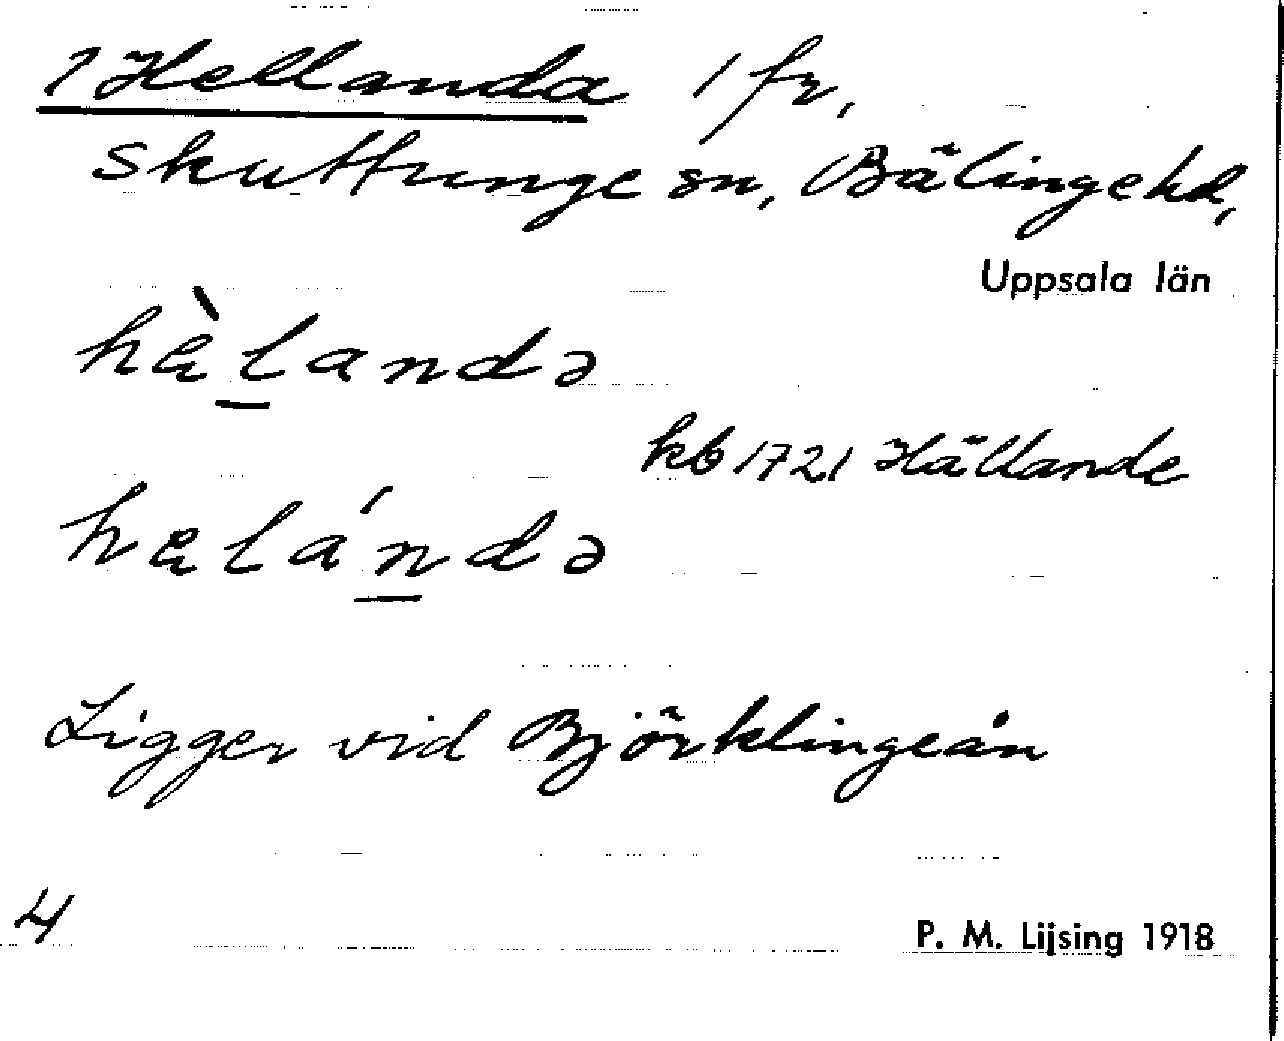 1 Hellanda 1 fr,
skuttunge sn, Bälinge hd,
Uppsala län
hàlandə
kb 1721 Hällande
halándə
Ligger vid Björklingeån
4
P. M. Lijsing 1918